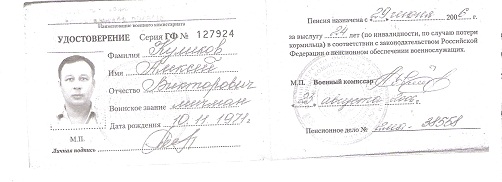 Наименование военного комиссариата
УДОСТОВЕРЕНИЕ Серия ГФ № 127924
Фамилия Кушков
Имя Алексей
Отчество Викторович
Воинское звание мичман
Дата рождения 10.11.1971г.
М.П.
Личная подпись
Пенсия назначена с 29 июня 2006 г.
за выслугу 24 лет (по инвалидности, по случаю потери
кормильца) в соответствии с законодательством Российской
Федерации о пенсионном обеспечении военнослужащих.
М.П. Военный комиссар
августа
Пенсионное дело № 38558